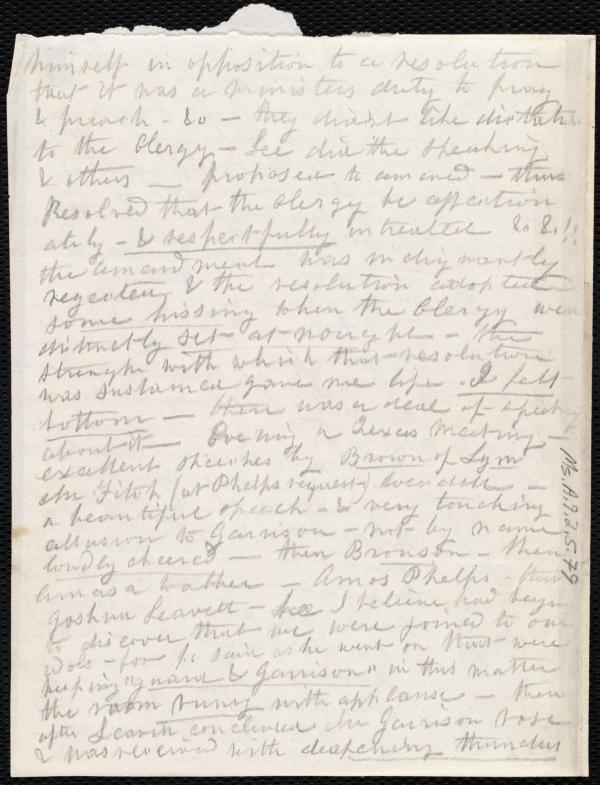 himself in opposition to a resolution
that it was a ministers duty to pray
& preach - &c - they didn't like dictation
to the Clergy - Lee did the speaking
& others - proposed to amend - thus
Resolved that the clergy be affection
ately - & respectfully intreated &c &c!!
the amendment was indignantly
rejected & the resolution adopted
some hissing when the Clergy were
distinctly set at nought - the
strength with which that resolution
was sustained gave me life - I felt
bottom - there was a deal of speaking
about it - Evening a Texas meeting -
excellent speeches by Brown of Lynn
Mr Fitch (at Phelps request)
a beautiful speech - & very touching
allusion to Garrison - not by name
loudly cheered - then Bronson - then
Amasa Walker - Amos Phelps - then
Joshua Leavitt - he I believe had begun
to discover that we were joined to our
idols - for he said as he went on that were
keeping "guard & Garrison" in this matter
the room rung with applause - then
after Leavitt concluded Mr Garrison rose
& was received with deafening thunders
Ms.A.9.2.5.79